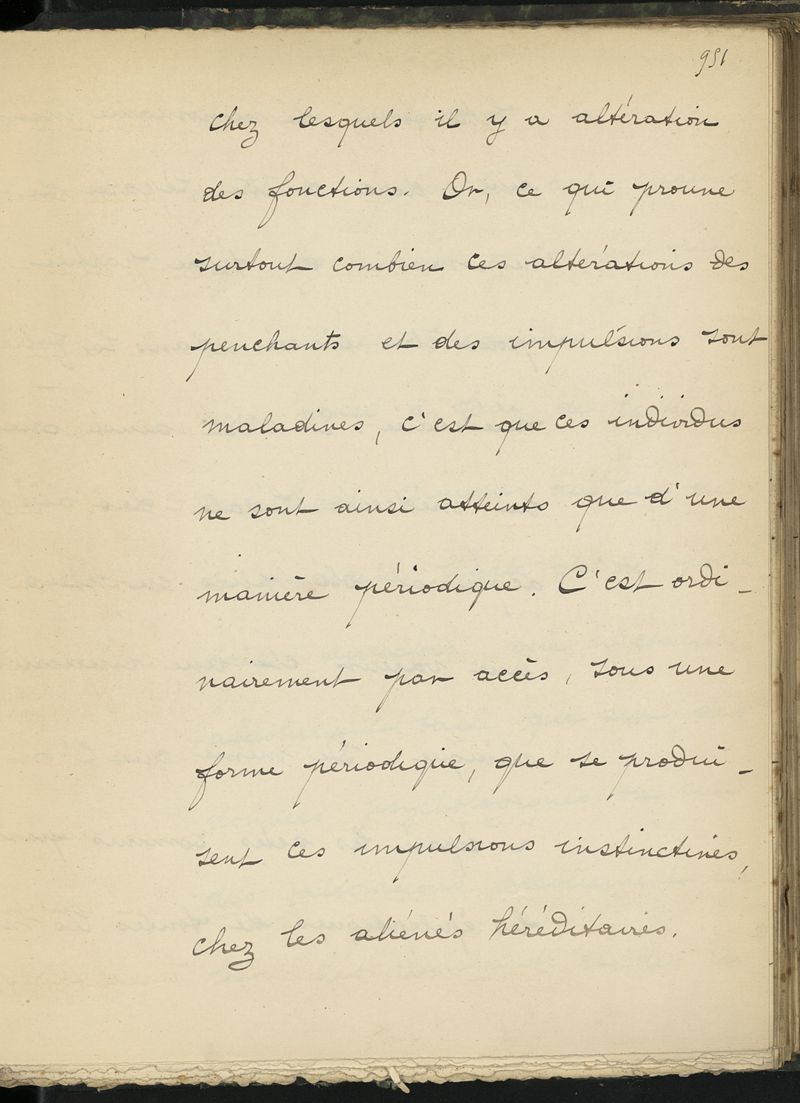 951
chez lesquels il y a altération
des fonctions. Or, ce qui prouve
surtout combien ces altérations des
penchants et des impulsions sont
maladives, c'est que ces individus
ne sont ainsi atteints que d'une
manière périodique. C'est ordi-
nairement par accès, sous une
forme périodique, que se produi-
sent ces impulsions instinctives,
chez les aliénés héréditaires.